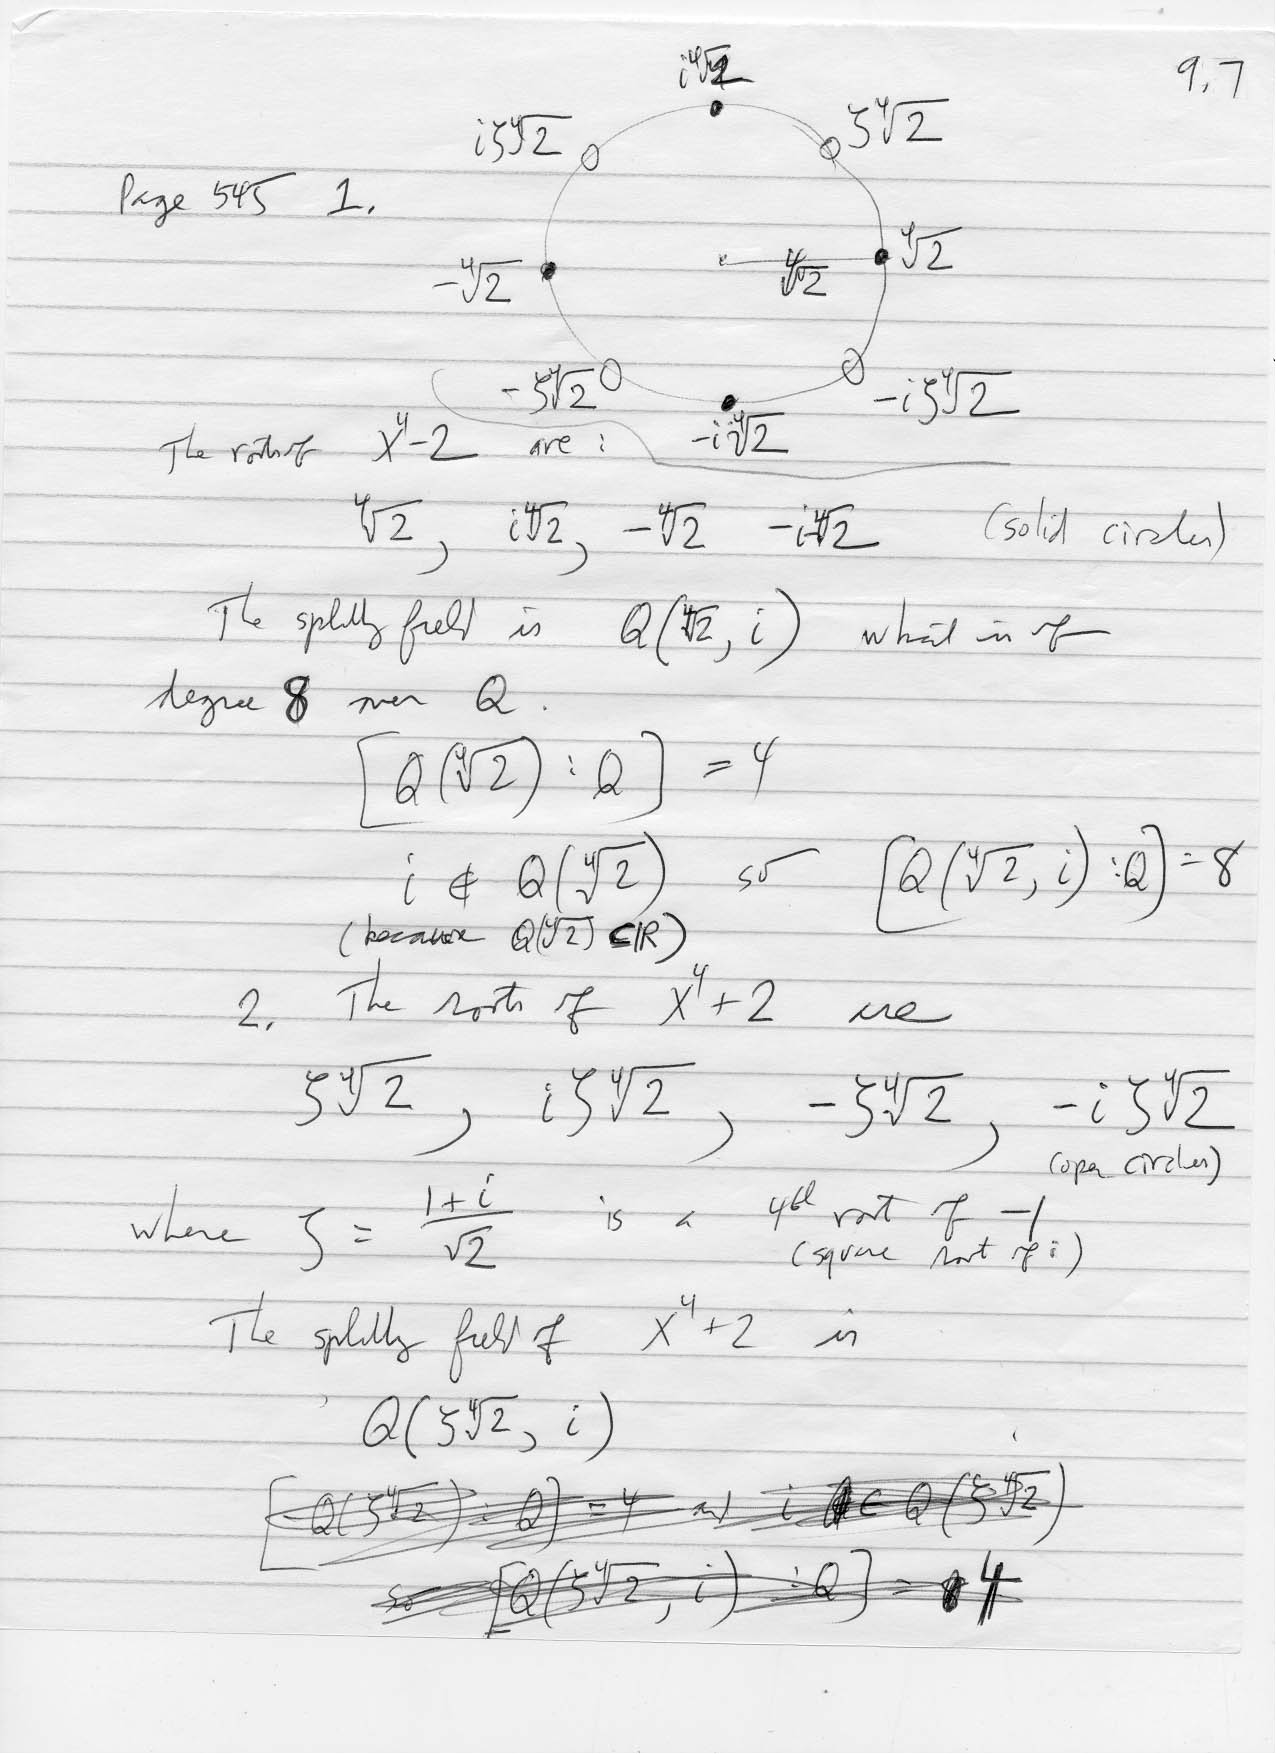 9.7
i∜2
iζ∜2 ζ∜2
Page 545 1.
-∜2 ∜2 ∜2
-ζ∜2 -iζ∜2
-i∜2
The roots of x⁴-2 are:
∜2, i∜2, -∜2 -i∜2 (solid circles)
The splitting field is Q(∜2, i) which is of
degree 8 over Q.
[Q(∜2) : Q] = 4
i ∉ Q(∜2) so [Q(∜2, i) : Q] = 8
(because Q(∜2) ⊂ ℝ)
2. The roots of x⁴+2 are
ζ∜2, iζ∜2, -ζ∜2, -iζ∜2
(open circles)
where ζ = (1+i)/√2 is a 4th root of -1
(square root of i)
The splitting field of x⁴+2 is
Q(ζ∜2, i)
[Q(ζ∜2) : Q] = 4 and i ∈ Q(ζ∜2)
so [Q(ζ∜2, i) : Q] = 4